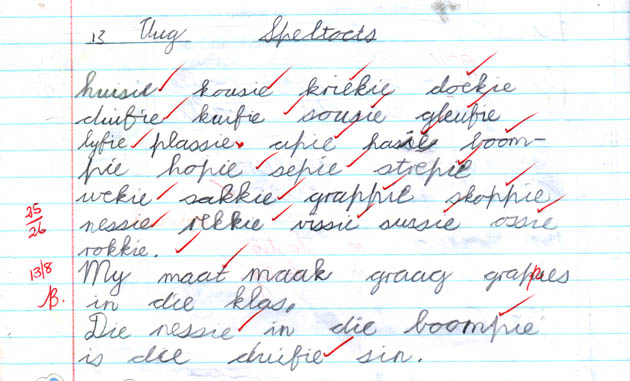 13 Aug Speltoets
huisie kousie kriekie doekie
duifie kuifie sousie gleufie
lyfie plassie apie passie boom-
pie hopie sepie strepie
wekie sakkie grappie skoppie
25/26 nessie rekkie vissie sussie ossie
rokkie.
13/8 My maat maak graag grappies
B. in die klas.
Die nessie in die boompie
is die duifie sin.